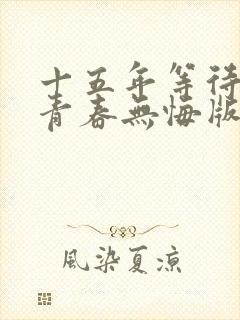 十五年等待
青春無悔版
風染夏涼